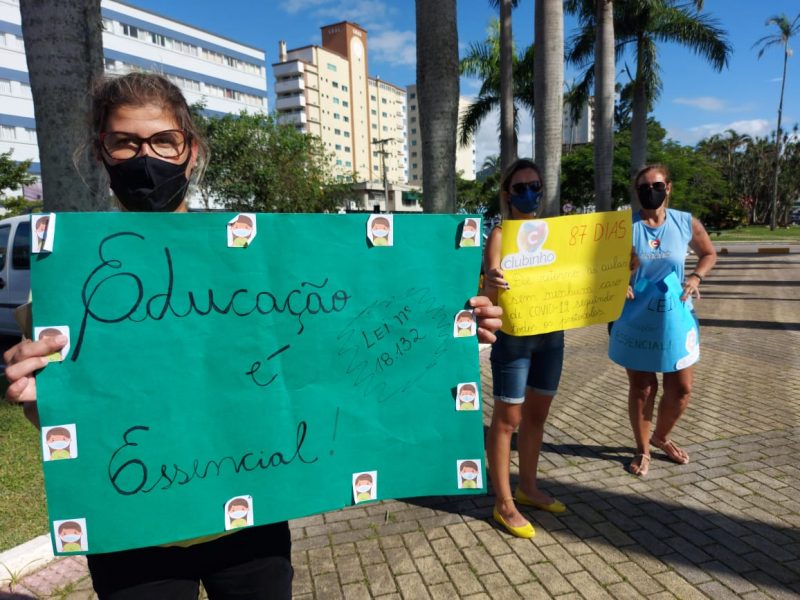 Educação
é
Essencial!
LEI Nº
18.132
clubinho
87 DIAS
retorno às aulas
sem nenhum caso
de COVID-19 seguindo
todos os protocolos
LEI
ESSENCIAL!